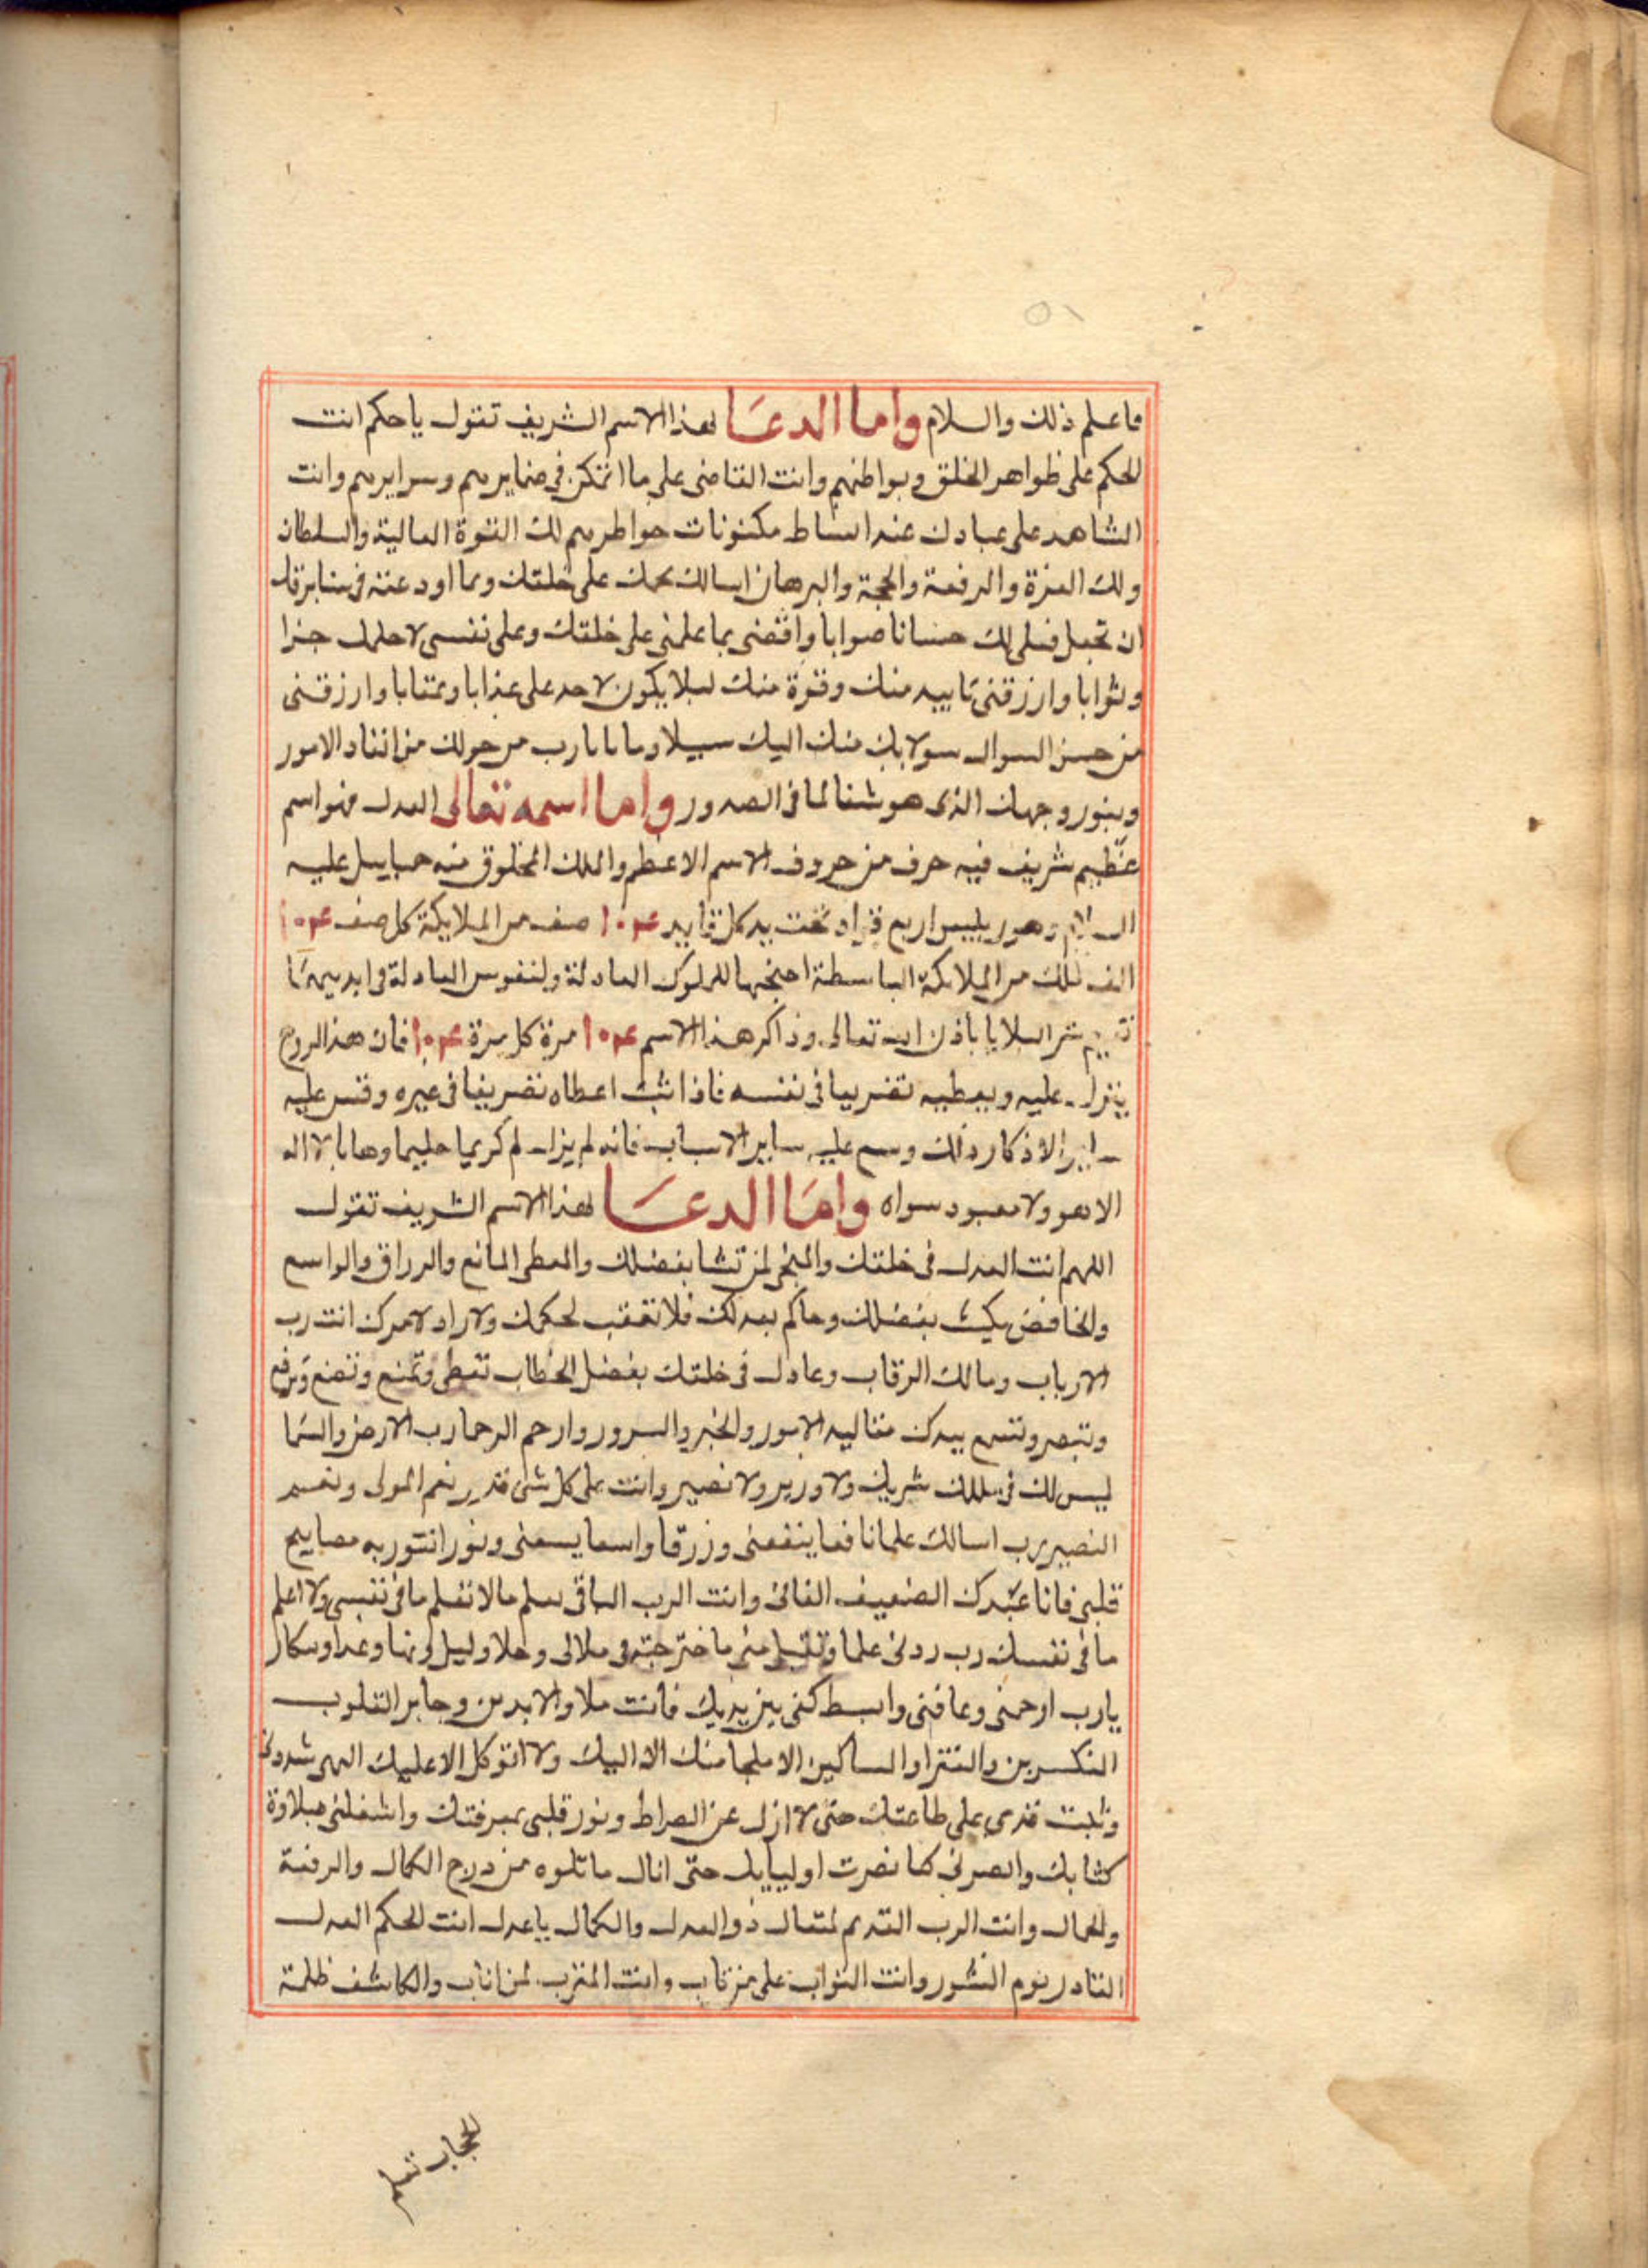 ٥١
فاعلم ذلك والسلام واما الدعا لهذا الاسم الشريف تقول ياحكم انت
الحكم على ظواهر الخلق وبواطنهم وانت القاضى على ما اتمكن فى ضمايرهم وسرايرهم وانت
الشاهد على عبادك عند انبساط مكنونات خواطرهم لك القوة العالية والسلطان
ولك العزة والرفعة والحجة والبرهان اسالك بحكمك على خلقك وبما اودعته فى
ان تجعل فعلى لك حسانا صوابا واقضى بما علمنى على خلقك وعلى نفسى لاجلك جزا
وثوابا وارزقنى تاييد منك وقوة منك ليلا يكون لاحد على عذابا وعتابا وارزقنى
من حسن السوال سولا بك منك اليك سبيلا يارب من حولك من انفاد الامور
وبنور وجهك الذى هو شفا لما فى الصدور واما اسمه تعالى العدل فهو اسم
عظيم شريف فيه حرف من حروف الاسم الاعظم والملك المخلوق منه عليه
السلام وهو رييس اربع قواد تحت يد كل قايد ١٠٤ صف من الملايكة كل صف ١٠٤
الف ملك من الملايكة الباسطة اجنحتها للملوك العادلة ولنفوس العادلة
شر البلايا باذن الله تعالى وذاكر هذا الاسم ١٠٤ مرة كل مرة ١٠٤ فان هذا الروح
ينزل عليه ويعطيه تصريفا فى نفسه فاذا ثبت اعطاه تصريفا فى غيره وقس عليه
ساير الاذكار ذلك وسع عليه ساير الاسباب فانه لم يزل كريما حليما وهابا لا اله
الا هو ولا معبود سواه واما الدعا لهذا الاسم الشريف تقول
اللهم انت العدل فى خلقك والمنجى لمن تشا بفضلك والمعطى المانع والرزاق والواسع
والخافض بفضلك وحاكم بعدلك فلا تعقب لحكمك ولا راد لامرك انت رب
الارباب ومالك الرقاب وعادل فى خلقك بفضل الخطاب تعطى وتمنع وتضع وترفع
وتبصر وتسمع بيدك مقاليد الامور والخير والسرور وارحم الرحما رب الارض والسما
ليس لك فى ملكك شريك ولا وزير ولا نصير وانت على كل شى قدير نعم المولى ونعم
النصير رب اسالك علما نافعا ينفعنى ورزقا واسعا يسعنى ونورا نتنور به مصابيح
قلبى فانا عبدك الضعيف الفانى وانت الرب الباقى تعلم مالا نعلم تعلم مافى نفسى ولا اعلم
مافى نفسك رب زدنى علما وتقبل منى
يارب ارحمنى وعافنى وابسط كفى بين يديك فانت ملاذ الابدين وجابر القلوب
المنكسرين والفقرا والمساكين الا ملجا منك الا اليك ولا اتوكل الا عليك الهى
وثبت قدمى على طاعتك حتى لا ازل عن الصراط ونور قلبى بمعرفتك واشغلنى بتلاوة
كتابك وانصرنى كما نصرت اوليايك حتى انال ما نتلوه من درج الكمال والرفعة
والجمال وانت الرب القديم المتعال ذو العدل والكمال ياعدل انت الحكم العدل
القادر يوم النشور وانت التواب على من تاب وانت المقرب لمن اناب والكاشف ظلمة
الحجاب تعلم